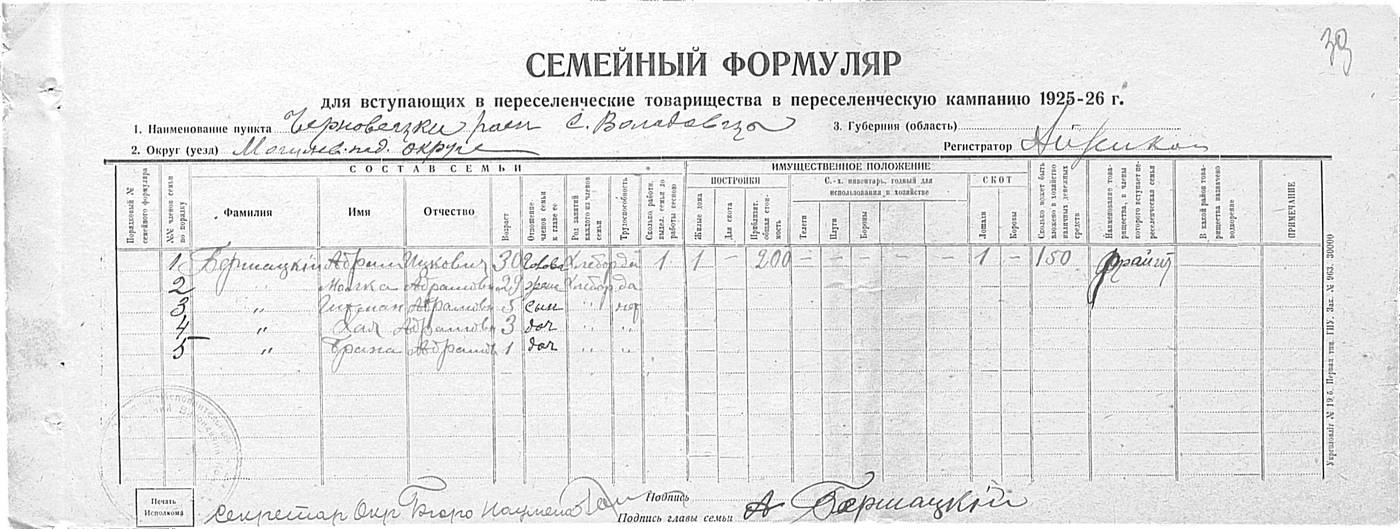 39
СЕМЕЙНЫЙ ФОРМУЛЯР
для вступающих в переселенческие товарищества в переселенческую кампанию 1925-26 г.
1. Наименование пункта Черновецки раен с. Воладовцы 3. Губерния (область)
2. Округ (уезд) Могилев. под. округе Регистратор
СОСТАВ СЕМЬИ ИМУЩЕСТВЕННОЕ ПОЛОЖЕНИЕ
ПОСТРОЙКИ С.-х. инвентарь, годный для использования в хозяйстве СКОТ
Порядковый № семейного формуляра №№ членов семьи по порядку Фамилия Имя Отчество Возраст Отношение членов семьи к главе ее Род занятий каждого из членов семьи Трудоспособность Сколько работн. выдел. семья до работы весною Жилые дома Для скота Приблизит. общая стоимость Телеги Плуги Бороны Лошади Коровы Сколько может быть вложено в хозяйство наличных денежных средств Наименование товарищества, в члены которого вступает переселенческая семья В какой район товарищества назначено водворение ПРИМЕЧАНИЕ
1 Бершацкій Абрам Ицкович 30 Глова Хлебор да 1 1 – 200 1 – 150 Фрайгит
2 " Абрамовн 29 жена Хлебор да
3 " Абрамов 5 сын " нет
4 " Хая Абрамовн 3 доч " "
5 " Абрамов 1 доч " "
Печать Исполкома
Секретар Окр Бюро Подпись
Подпись главы семьи А Бершацкій
Упрполлит № 19/б. Первая тип. ГИУ. Зак. № 963. 30000